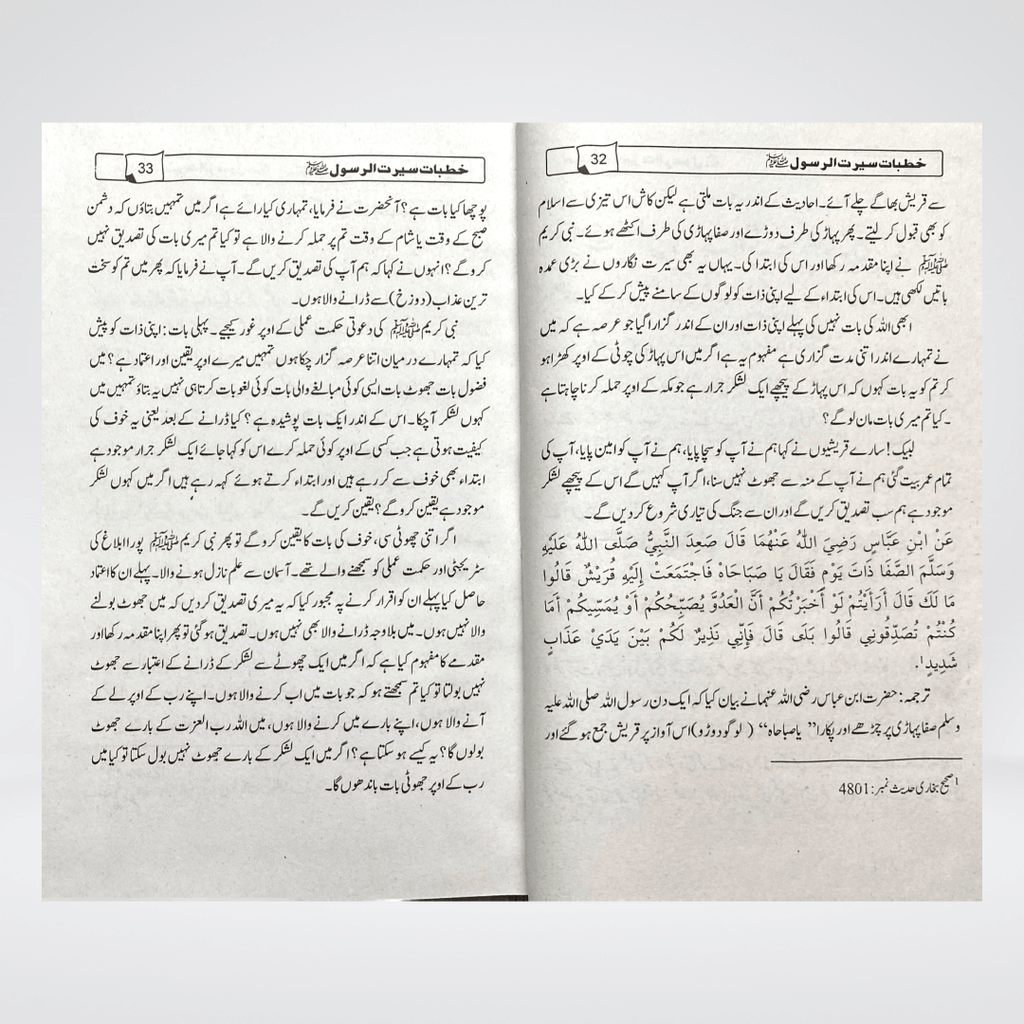 32
خطبات سیرت الرسول ﷺ
سے قریش بھاگے چلے آئے۔ احادیث کے اندر یہ بات ملتی ہے لیکن کاش اس تیزی سے اسلام
کو بھی قبول کر لیتے۔ پھر پہاڑ کی طرف دوڑے اور صفا پہاڑی کی طرف اکٹھے ہوئے۔ نبی کریم
ﷺ نے اپنا مقدمہ رکھا اور اس کی ابتدا کی۔ یہاں یہ بھی سیرت نگاروں نے بڑی عمدہ
باتیں لکھی ہیں۔ اس کی ابتداء کے لیے اپنی ذات کو لوگوں کے سامنے پیش کر کے کیا۔
ابھی اللہ کی بات نہیں کی پہلے اپنی ذات اور ان کے اندر گزارا گیا جو عرصہ ہے کہ میں
نے تمہارے اندر اتنی مدت گزاری ہے مفہوم یہ ہے اگر میں اس پہاڑ کی چوٹی کے اوپر کھڑا ہو
کر تم کو یہ بات کہوں کہ اس پہاڑ کے پیچھے ایک لشکر جرار ہے جو مکہ کے اوپر حملہ کرنا چاہتا ہے
۔ کیا تم میری بات مان لو گے؟
لیک! سارے قریشیوں نے کہا ہم نے آپ کو سچا پایا، ہم نے آپ کو امین پایا، آپ کی
تمام عمر بیت گئی ہم نے آپ کے منہ سے جھوٹ نہیں سنا، اگر آپ کہیں گے اس کے پیچھے لشکر
موجود ہے ہم سب تصدیق کریں گے اور ان سے جنگ کی تیاری شروع کر دیں گے۔
عَنْ ابْنِ عَبَّاسٍ رَضِيَ اللَّهُ عَنْهُمَا قَالَ صَعِدَ النَّبِيُّ صَلَّى اللَّهُ عَلَيْهِ
وَسَلَّمَ الصَّفَا ذَاتَ يَوْمٍ فَقَالَ يَا صَبَاحَاهْ فَاجْتَمَعَتْ إِلَيْهِ قُرَيْشٌ قَالُوا
مَا لَكَ قَالَ أَرَأَيْتُمْ لَوْ أَخْبَرْتُكُمْ أَنَّ الْعَدُوَّ يُصَبِّحُكُمْ أَوْ يُمَسِّيكُمْ أَمَا
كُنْتُمْ تُصَدِّقُونِي قَالُوا بَلَى قَالَ فَإِنِّي نَذِيرٌ لَكُمْ بَيْنَ يَدَيْ عَذَابٍ
شَدِيدٍ۱۔
ترجمہ: حضرت ابن عباس رضی اللہ عنہما نے بیان کیا کہ ایک دن رسول اللہ صلی اللہ علیہ
وسلم صفا پہاڑی پر چڑھے اور پکارا ”یاصباحاہ“ (لوگو دوڑو) اس آواز پر قریش جمع ہو گئے اور
۱ صحیح بخاری حدیث نمبر: 4801
33
خطبات سیرت الرسول ﷺ
پوچھا کیا بات ہے؟ آنحضرت نے فرمایا، تمہاری کیا رائے ہے اگر میں تمہیں بتاؤں کہ دشمن
صبح کے وقت یا شام کے وقت تم پر حملہ کرنے والا ہے تو کیا تم میری بات کی تصدیق نہیں
کرو گے؟ انہوں نے کہا کہ ہم آپ کی تصدیق کریں گے۔ آپ نے فرمایا کہ پھر میں تم کو سخت
ترین عذاب (دوزخ) سے ڈرانے والا ہوں۔
نبی کریم ﷺ کی دعوتی حکمت عملی کے اوپر غور کیجیے۔ پہلی بات: اپنی ذات کو پیش
کیا کہ تمہارے درمیان اتنا عرصہ گزار چکا ہوں تمہیں میرے اوپر یقین اور اعتماد ہے؟ میں
فضول بات جھوٹ بات ایسی کوئی مبالغے والی بات کوئی لغو بات کرتا ہی نہیں یہ بتاؤ تمہیں میں
کہوں لشکر آ چکا۔ اس کے اندر ایک بات پوشیدہ ہے؟ کیا ڈرانے کے بعد یعنی یہ خوف کی
کیفیت ہوتی ہے جب کسی کے اوپر کوئی حملہ کرے اس کو کہا جائے ایک لشکر جرار موجود ہے
ابتداء بھی خوف سے کر رہے ہیں اور ابتداء کرتے ہوئے کہہ رہے ہیں اگر میں کہوں لشکر
موجود ہے یقین کرو گے؟ یقین کریں گے۔
اگر اتنی چھوٹی سی، خوف کی بات کا یقین کرو گے تو پھر نبی کریم ﷺ پورا ابلاغ کی
سٹریٹجی اور حکمت عملی کو سمجھنے والے تھے۔ آسمان سے علم نازل ہونے والا۔ پہلے ان کا اعتماد
حاصل کیا پہلے ان کو اقرار کرنے پہ مجبور کیا کہ یہ میری تصدیق کر دیں کہ میں جھوٹ بولنے
والا نہیں ہوں۔ میں بلاوجہ ڈرانے والا بھی نہیں ہوں۔ تصدیق ہو گئی تو پھر اپنا مقدمہ رکھا اور
مقدمے کا مفہوم کیا ہے کہ اگر میں ایک چھوٹے سے لشکر کے ڈرانے کے اعتبار سے جھوٹ
نہیں بولتا تو کیا تم سمجھتے ہو کہ جو بات میں اب کرنے والا ہوں۔ اپنے رب کے اوپر لے کے
آنے والا ہوں، اپنے بارے میں کرنے والا ہوں، میں اللہ رب العزت کے بارے جھوٹ
بولوں گا؟ یہ کیسے ہو سکتا ہے؟ اگر میں ایک لشکر کے بارے جھوٹ نہیں بول سکتا تو کیا میں
رب کے اوپر جھوٹی بات باندھوں گا۔